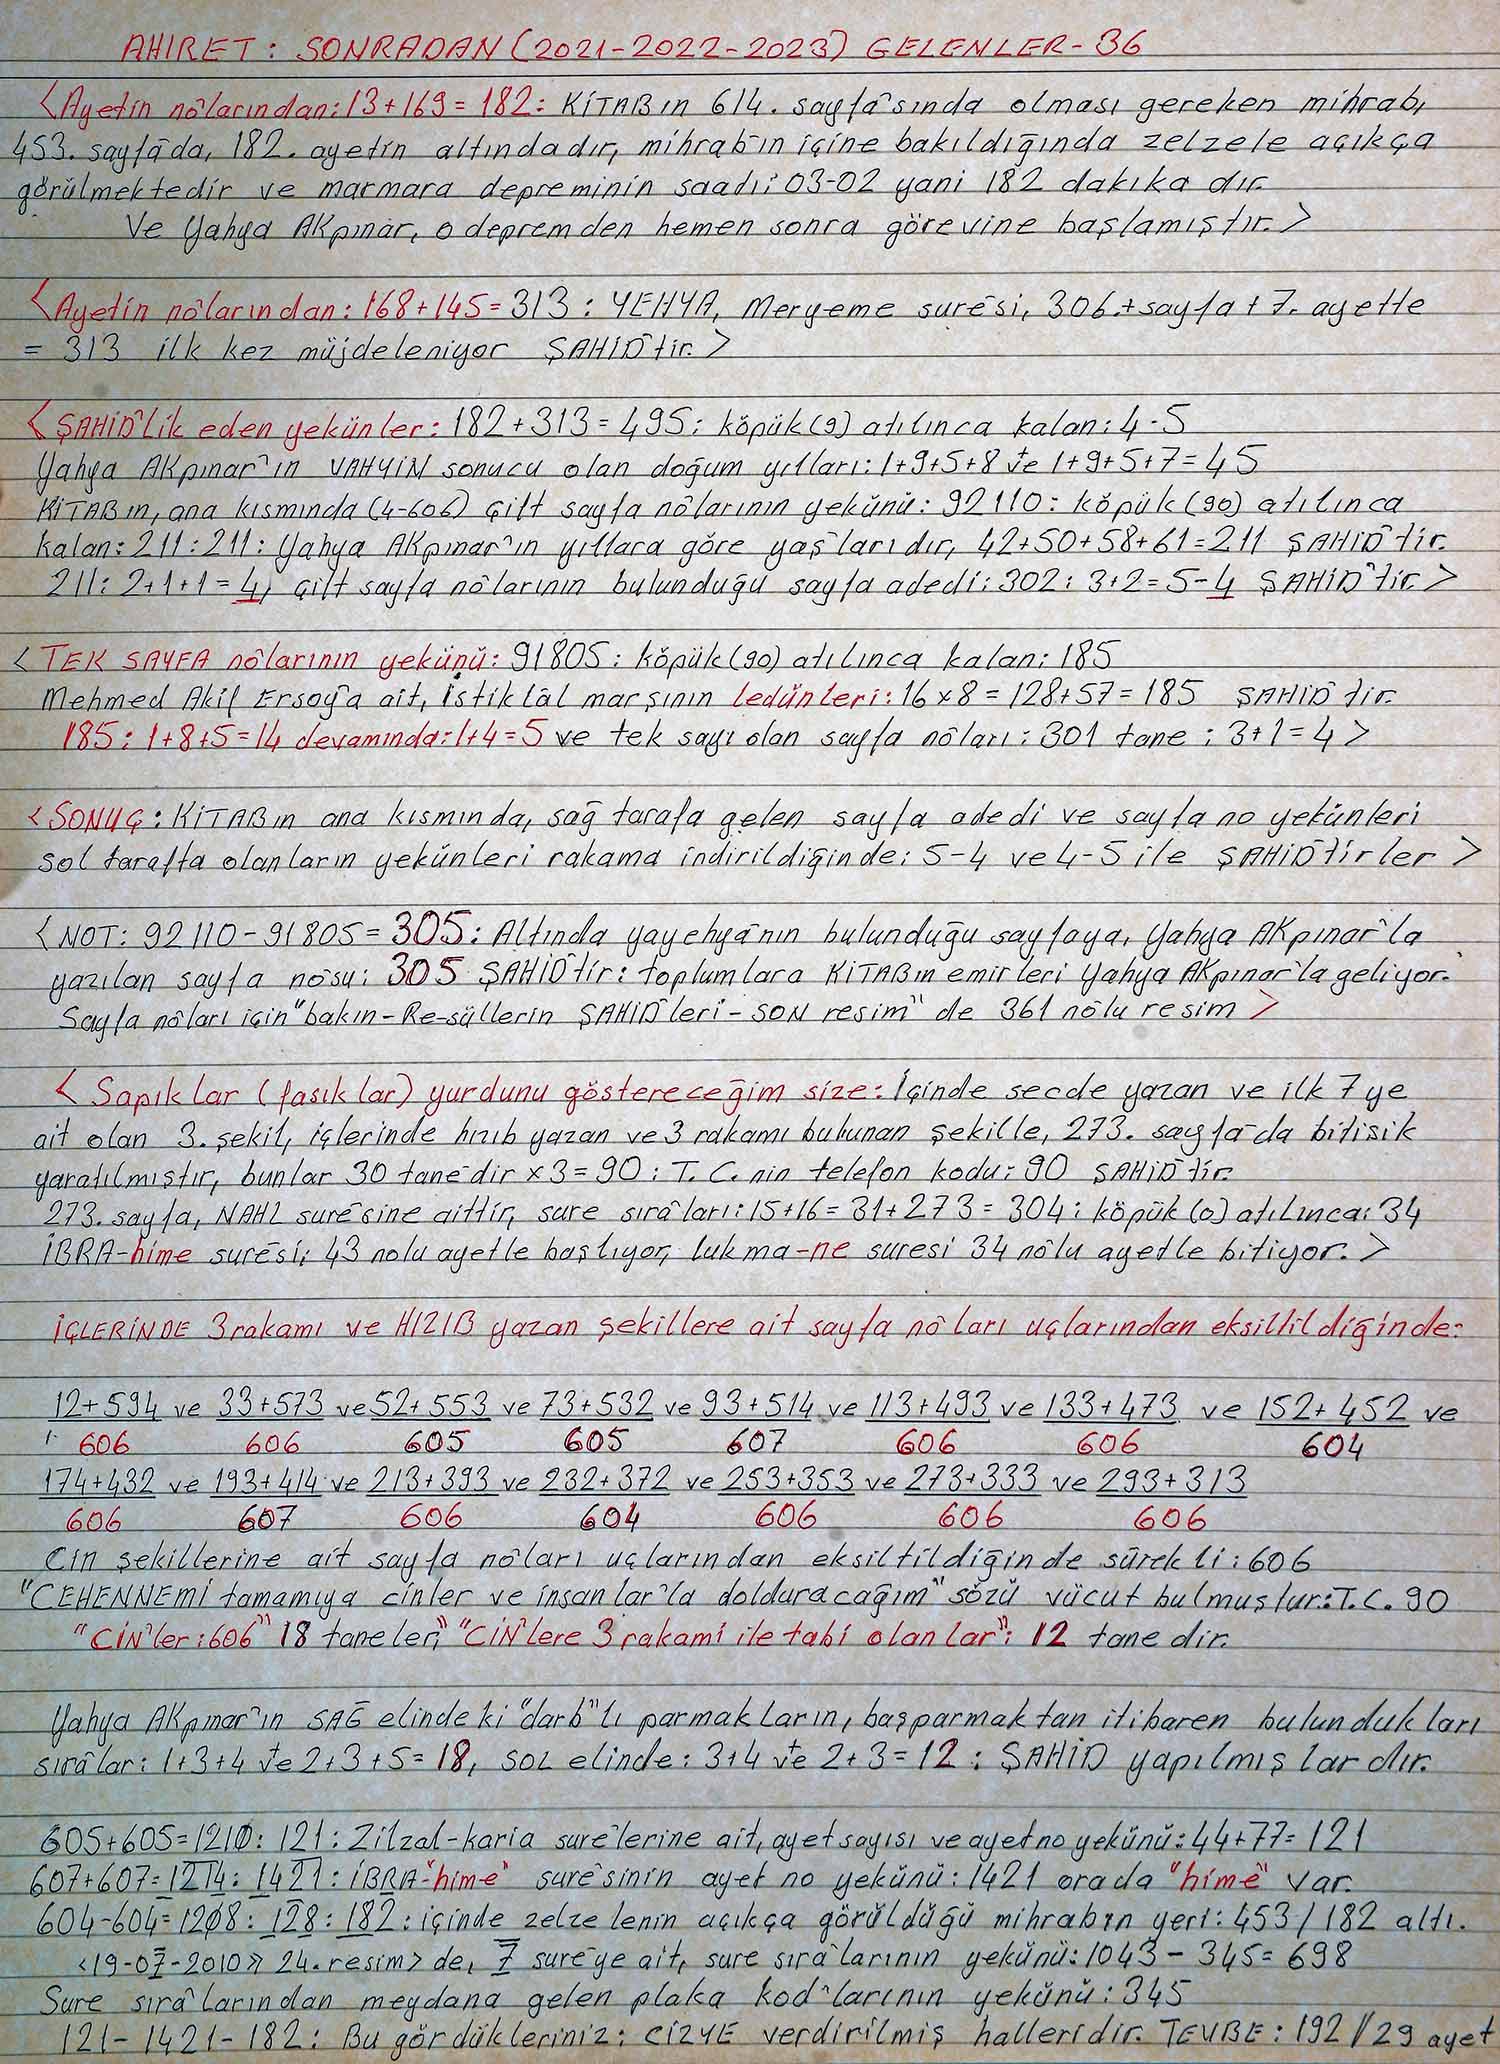 AHIRET: SONRADAN (2021-2022-2023) GELENLER-36
<Ayetin nô'larından: 13+169=182: KİTAB'ın 614. sayfâ'sında olması gereken mihrab,
453. sayfâ'da, 182. ayetin altındadır, mihrab'ın içine bakıldığında zelzele açıkça
görülmektedir ve marmara depreminin saadi: 03-02 yani 182 dakika dır.
Ve Yahya AKpınar, o depremden hemen sonra görevine başlamıştır.>
<Ayetin nô'larından: 168+145=313: YEHYA, Meryeme surêsi, 306.+sayfa+7. ayette
= 313 ilk kez müjdeleniyor ŞAHİD'tir.>
<ŞAHİD'lik eden yekünler: 182+313=495: köpük(9) atılınca kalan: 4-5
Yahya AKpınar'ın VAHYİN sonucu olan doğum yılları: 1+9+5+8 ve 1+9+5+7=45
KİTAB'ın, ana kısmında (4-606) Çift sayfa nô'larının yekünü: 92110: köpük (90) atılınca
kalan: 211: 211: Yahya AKpınar'ın yıllara göre yaş'larıdır, 42+50+58+61=211 ŞAHİD'tir.
211: 2+1+1=4, Çift sayfa nô'larının bulunduğu sayfa adedi: 302: 3+2=5-4 ŞAHİD'tir.>
<TEK SAYFA nô'larının yekünü: 91805: köpük(90) atılınca kalan: 185
Mehmed Akif Ersoy'a ait, istiklâl marşının ledünleri: 16x8=128+57=185 ŞAHİD'tir.
185: 1+8+5=14 devamında: 1+4=5 ve tek sayı olan sayfa nô'ları: 301 tane: 3+1=4>
<SONUÇ: KİTAB'ın ana kısmında, sağ tarafa gelen sayfa adedi ve sayfa no yekünleri
sol tarafta olanların yekünleri rakama indirildiğinde: 5-4 ve 4-5 ile ŞAHİD'tirler>
<NOT: 92110-91805=305: Altında yayehyâ'nın bulunduğu sayfaya, Yahya AKpınar'la
yazılan sayfa nosu: 305 ŞAHİD'tir: toplumlara KİTAB'ın emirleri Yahya AKpınar'la geliyor.
Sayfa nô'ları için "bakın-Re-süllerin ŞAHİD'leri-SON resim" de 361 nôlu resim>
<Sapıklar (fasıklar) yurdunu göstereceğim size: İçinde secde yazan ve ilk 7 ye
ait olan 3. şekil, içlerinde hızıb yazan ve 3 rakamı bulunan şekille, 273. sayfâ-da bitişik
yaratılmıştır, bunlar 30 tanedir x3=90: T.C. nin telefon kodu: 90 ŞAHİD'tir.
273. sayfa, NAHL surêsine aittir, sure sırâ'ları: 15+16=31+273=304: köpük(0) atılınca: 34
İBRA-hime surêsi: 43 nolu ayetle başlıyor, lukma-ne suresi 34 nôlu ayetle bitiyor.>
İÇLERİNDE 3 rakamı ve HIZIB yazan şekillere ait sayfa nô'ları uçlarından eksiltildiğinde:
12+594 ve 33+573 ve 52+553 ve 73+532 ve 93+514 ve 113+493 ve 133+473 ve 152+452 ve
606 606 605 605 607 606 606 604
174+432 ve 193+414 ve 213+393 ve 232+372 ve 253+353 ve 273+333 ve 293+313
606 607 606 604 606 606 606
Cin şekillerine ait sayfa nô'ları uçlarından eksiltildiğinde sürekli: 606
"CEHENNEMİ tamamıya cinler ve insanlar'la dolduracağım" sözü vücut bulmuştur: T.C. 90
"CİN'ler: 606" 18 taneler, "CİN'lere 3 rakamı ile tabi olanlar": 12 tane dir.
Yahya AKpınar'ın SAĞ elindeki "darb"lı parmakların, başparmaktan itibaren bulundukları
sırâ'lar: 1+3+4 ve 2+3+5=18, SOL elinde: 3+4 ve 2+3=12: ŞAHİD yapılmışlardır.
605+605=1210: 121: Zilzal-karia sure'lerine ait, ayet sayısı ve ayet no yekünü: 44+77=121
607+607=1214: 1421: İBRA"hime" surêsinin ayet no yekünü: 1421 orada "hime" var.
604-604=1208: 128: 182: içinde zelzelenin açıkça görüldüğü mihrab'ın yeri: 453/182 altı.
<19-07-2010>> 24. resim> de, 7 sure'ye ait, sure sırâ'larının yekünü: 1043-345=698
Sure sırâ'larından meydana gelen plaka kod'larının yekünü: 345
121-1421-182: Bu gördükleriniz: CİZYE verdirilmiş halleridir. TEVBE: 192//29 ayet